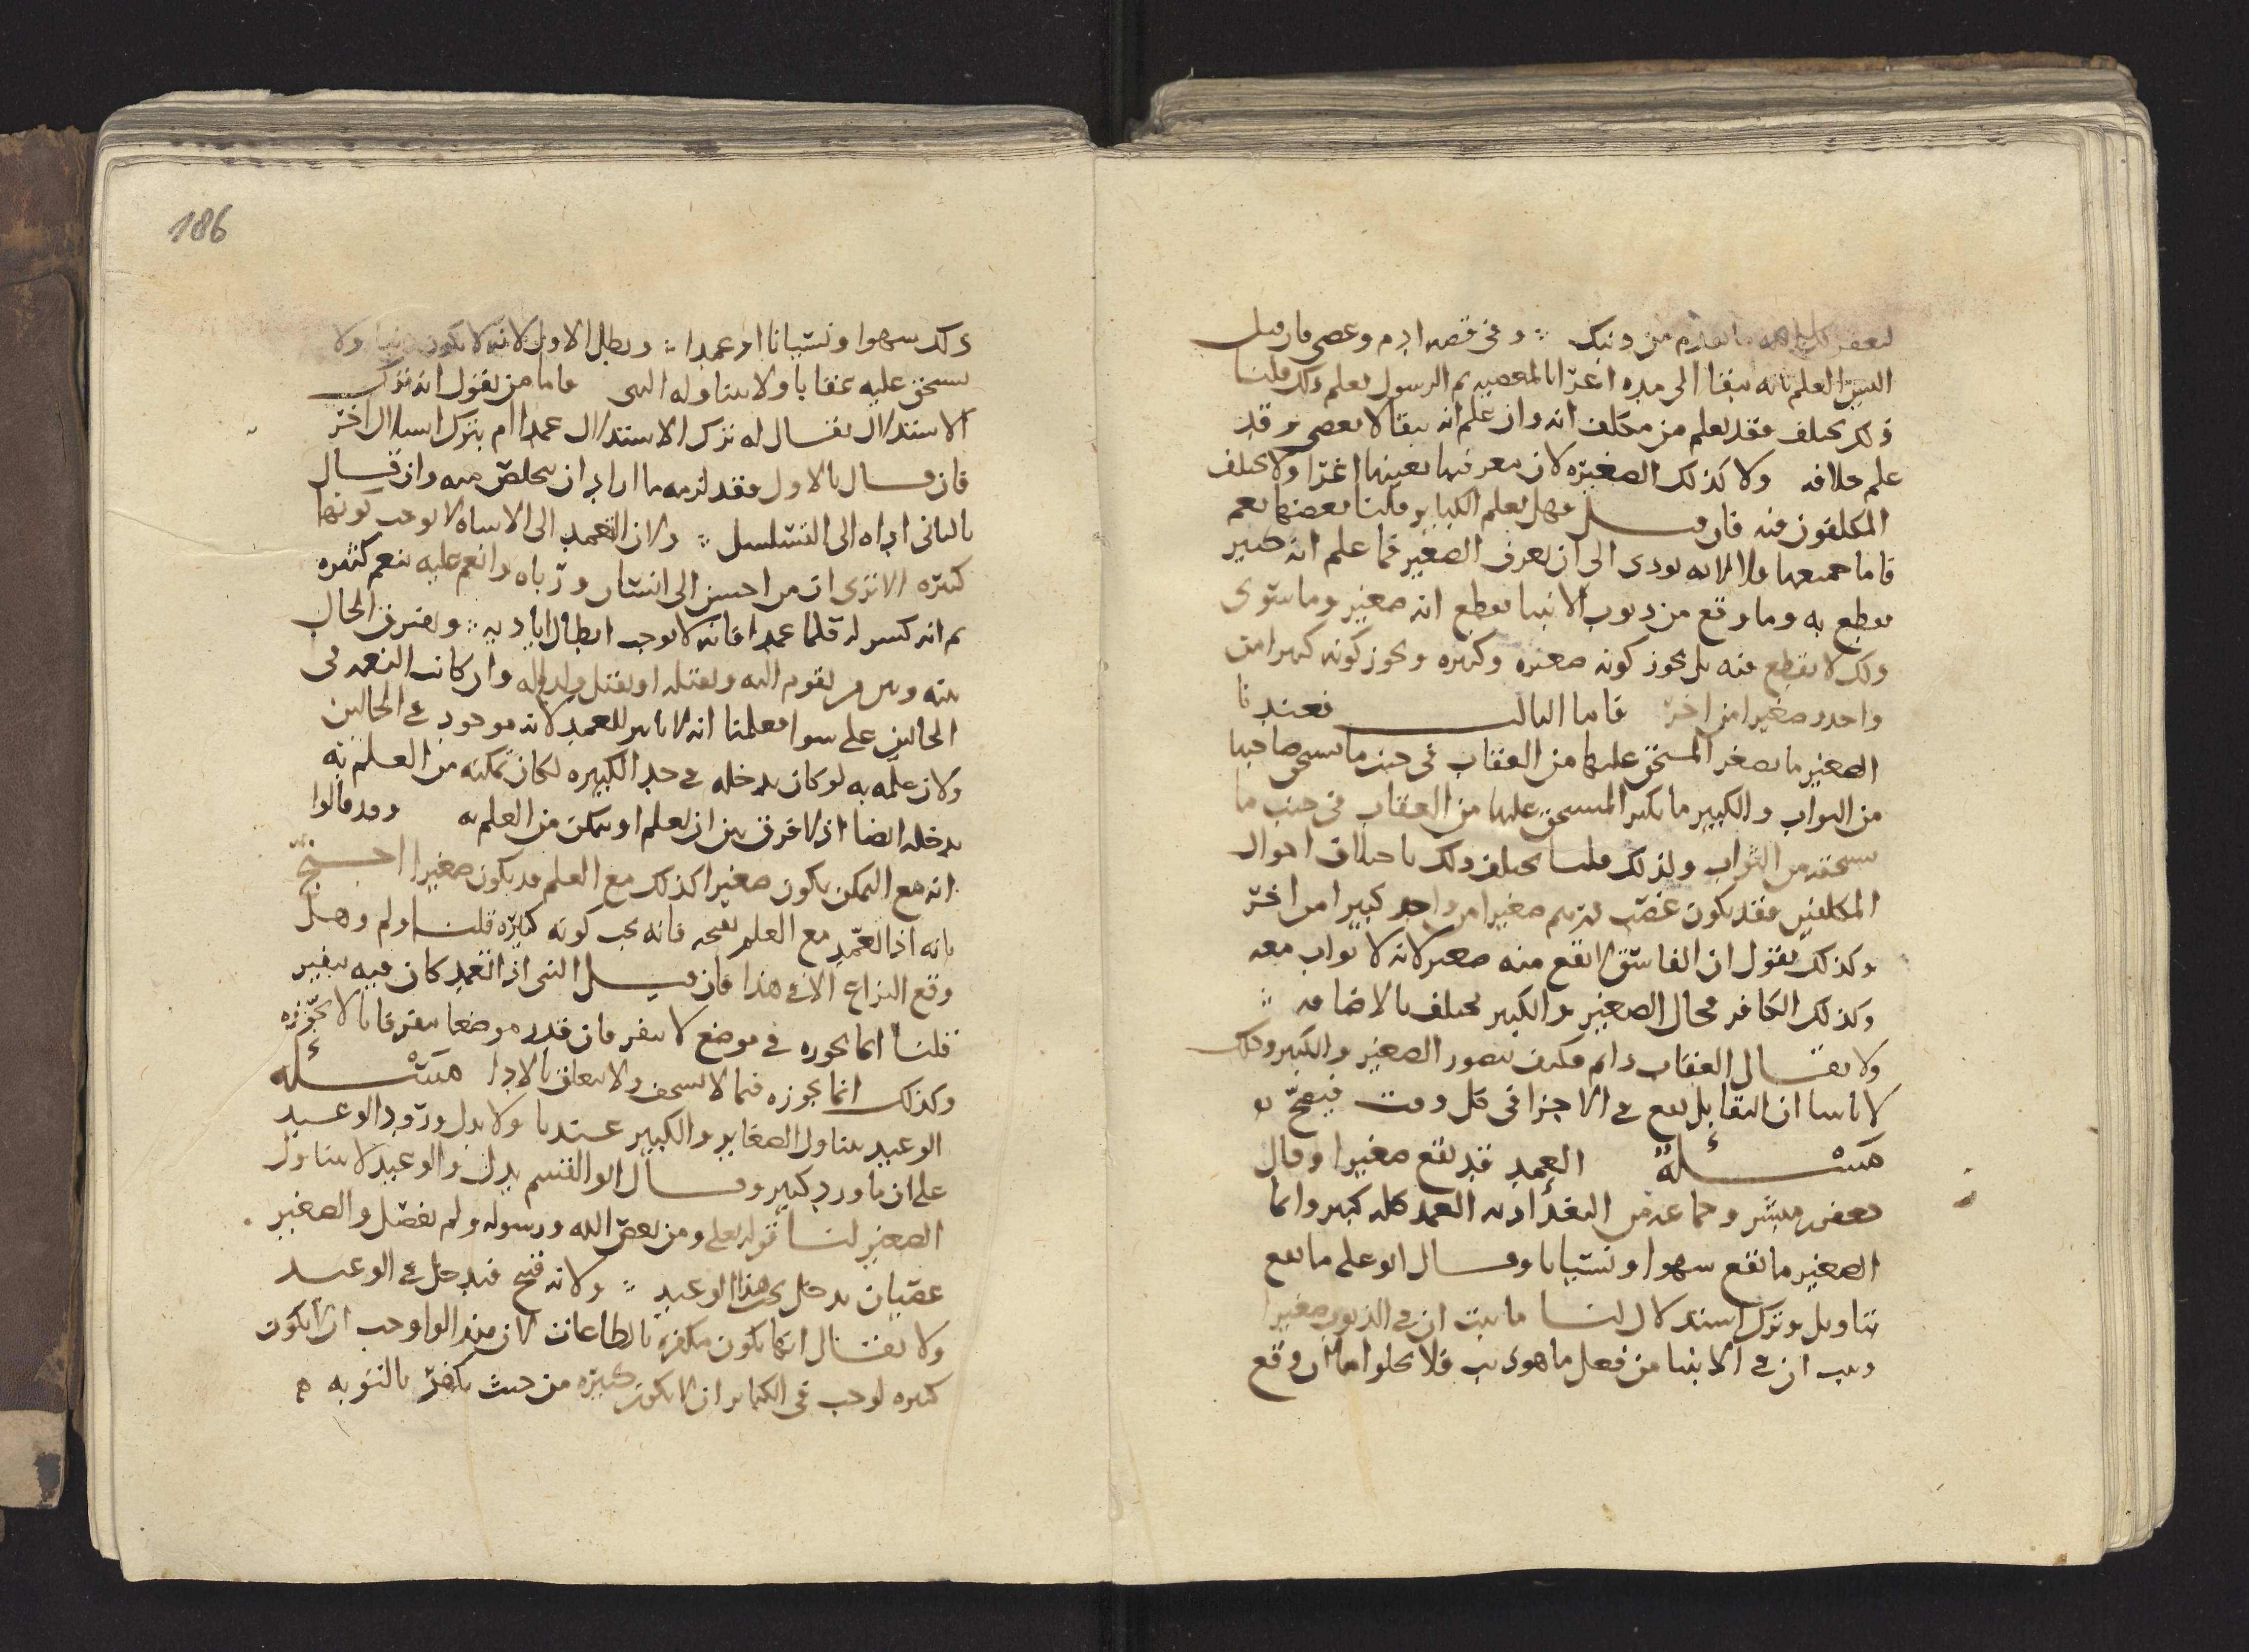 ليغفر لك الله ما تقدم من ذنبك ۞ وفي قصه ادم وعصى فان قيل
اليس العلم بانه يبقا الى مده اغرا بالمعصيه ثم الرسول يعلم ذلك قلنا
ذلك يختلف فقد يعلم من مكلف انه وان علم انه يبقا لا يعصي وقد
علم خلافه ولا كذلك الصغيره لان معرفتها بعينها اغرا ولا يختلف
المكلفون فيه فان قيل فهل يعلم الكباير قلنا بعضها نعم
فاما جميعها فلا لانه يودي الى ان يعرف الصغير فما علم انه كبير
يقطع به وما وقع من ذنوب الانبيا يقطع انه صغير وما سوى
ذلك لا يقطع فيه بل يجوز كونه صغيره وكبيره ويجوز كونه كبيرا من
واحد وصغيرا من اخر فاما الثالث فعندنا
الصغير ما يصغر المستحق عليها من العقاب في جنب ما يستحق صاحبها
من الثواب والكبير ما يكبر المستحق عليها من العقاب في جنب ما
يستحقه من الثواب ولذلك قلنا يختلف ذلك باختلاف احوال
المكلفين فقد يكون غصب درهم صغيرا من واحد كبيرا من اخر
وكذلك نقول ان الفاسق لا تقع منه صغير لانه لا ثواب معه
وكذلك الكافر فحال الصغير والكبير يختلف بالاضافه ۞
ولا يقال العقاب دائم فكيف يتصور الصغير والكبير وذلك
لانا بينا ان التقابل يقع في الاجزا في كل وقت فيصح
مسئلة العمد قد تقع صغيرا وقال
جعفر بن مبشر وجماعه من البغداديه العمد كله كبير وانما
الصغير ما تقع سهوا ونسيانا وقال ابو علي ما يقع
بتاويل وترك استدلال لنا ما ثبت ان في الذنوب صغيرا
وثبت ان في الانبيا من فعل ما هو ذنب فلا يخلوا اما ان وقع
186
ذلك سهوا ونسيانا او عمدا ۞ وبطل الاول لانه لا يكون ذنبا ولا
يستحق عليه عقابا ولا يتناوله النهى فاما من يقول انه ترك
الاستدلال يقال له ترك الاستدلال عمدا ام بترك استدلال اخر
فان قال بالاول فقد لزمه ما اراد ان يتخلص منه وان قال
بالثاني اداه الى التسلسل ۞ ولان التعمد الى الاساه لا يوجب كونها
كبيره الا ترى ان من احسن الى انسان ورباه وانعم عليه بنعم كثيره
ثم انه كسر له قلما عمدا فانه لا يوجب ابطال اياديه ۞ ويفترق الحال
بينه وبين من يقوم اليه ويقتله او يقتل ولده له وان كانت النعمه في
الحالين على سوا فعلمنا انه لا تاثير للعمد لانه موجود في الحالين
ولان علمه به لو كان يدخله في حد الكبيره لكان تمكنه من العلم به
يدخله ايضا اذ لا فرق بين ان يعلم او يتمكن من العلم به وقد قالوا
انه مع التمكن يكون صغيرا كذلك مع العلم قد يكون صغيرا احتج
بانه اذا تعمد مع العلم بقبحه فانه يجب كونه كبيره قلنا ولم وهل
وقع النزاع الا في هذا فان قيل النبي اذا تعمد كان فيه تنفير
قلنا انما نجوزه في موضع لا ينفر فان قدر موضعا ينفر فانا لا نجوزه
وكذلك انما يجوزه فيما لا يستخف ولا يتعلق بالادا مسئله
الوعيد يتناول الصغاير والكبير عندنا ولا يدل ورود الوعيد
على ان ما ورد كبير وقال ابو القسم يدل والوعيد لا يتناول
الصغير لنا قوله تعلى ومن يعص الله ورسوله ولم يفصل والصغير
عصيان يدخل تحت هذا الوعيد ۞ ولانه قبيح فيدخل في الوعيد
ولا يقال انما يكون مكفره بالطاعات لان هذا لو اوجب ان لا يكون
كبيره لوجب في الكباير ان لا يكون كبيره من حيث يكفر بالتوبه ه